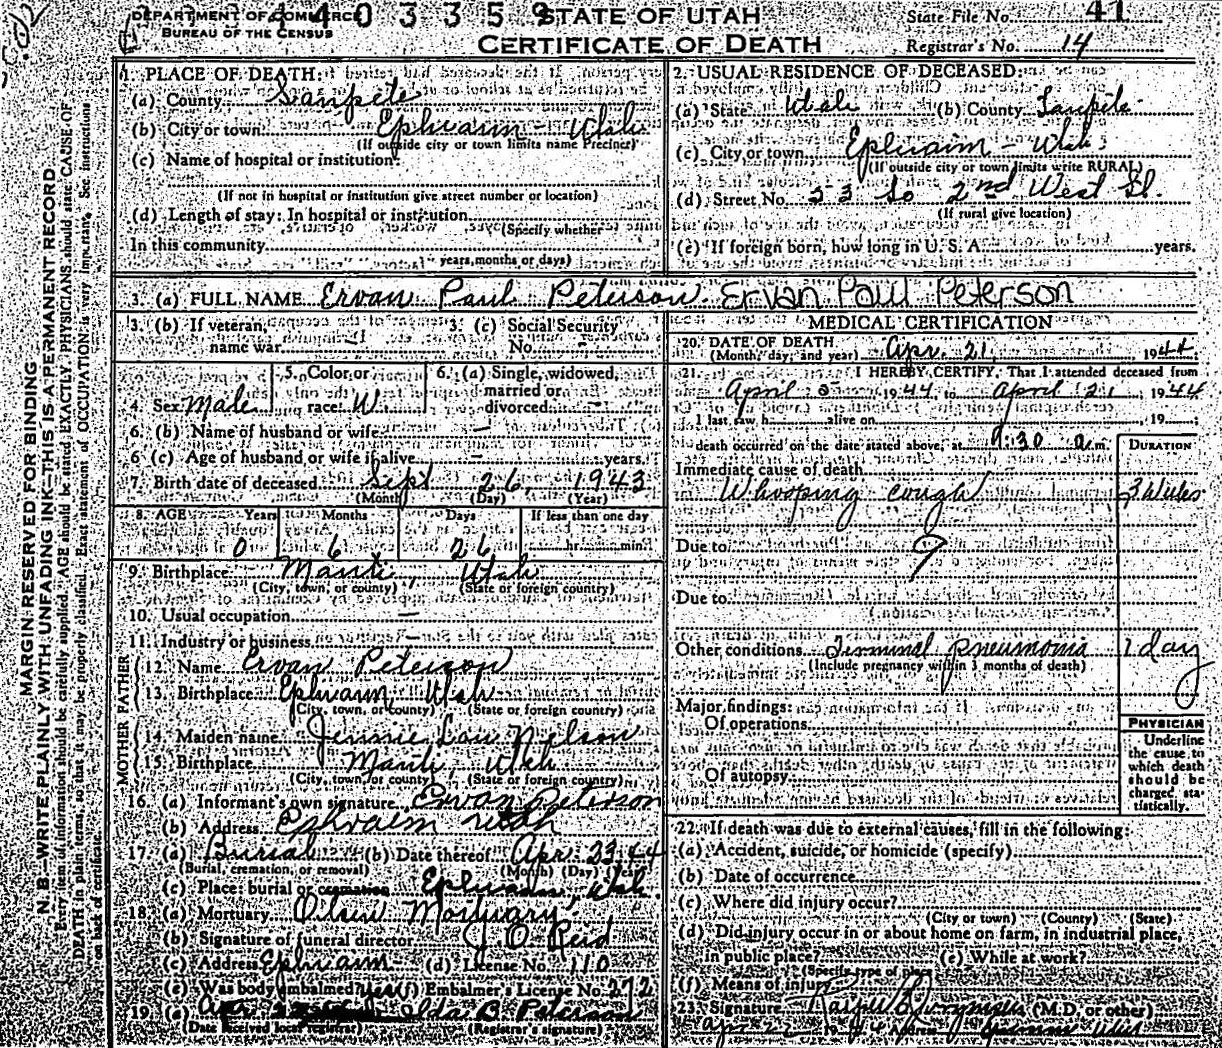 DEPARTMENT OF COMMERCE
BUREAU OF THE CENSUS
STATE OF UTAH
CERTIFICATE OF DEATH
State File No. 41
Registrar's No. 14
MARGIN RESERVED FOR BINDING
N. B.—WRITE PLAINLY WITH UNFADING INK—THIS IS A PERMANENT RECORD
Every item of information should be carefully supplied. AGE should be stated EXACTLY. PHYSICIANS should state CAUSE OF
DEATH in plain terms, so that it may be properly classified. Exact statement of OCCUPATION is very important. See instructions
on back of certificate.
1. PLACE OF DEATH:
(a) County Sanpete
(b) City or town Ephraim - Utah
(If outside city or town limits name Precinct)
(c) Name of hospital or institution:
(If not in hospital or institution give street number or location)
(d) Length of stay: In hospital or institution
(Specify whether
In this community
years, months or days)
2. USUAL RESIDENCE OF DECEASED:
(a) State Utah (b) County Sanpete
(c) City or town Ephraim - Utah
(If outside city or town limits write RURAL)
(d) Street No. 23 So 2nd West St.
(If rural give location)
(e) If foreign born, how long in U. S. A. years.
3. (a) FULL NAME Ervan Paul Peterson. Ervan Paul Peterson
3. (b) If veteran, name war
3. (c) Social Security No. -
4. Sex Male
5. Color or race W.
6. (a) Single, widowed, married or divorced -
6. (b) Name of husband or wife -
6 (c) Age of husband or wife if alive - years.
7. Birth date of deceased Sept 26, 1943
(Month) (Day) (Year)
8. AGE Years Months Days If less than one day
0 6 26 hr. min.
9. Birthplace Manti, Utah
(City, town, or county) (State or foreign country)
10. Usual occupation —
11. Industry or business —
FATHER
12. Name Ervan Peterson
13. Birthplace Ephraim Utah
(City, town, or county) (State or foreign country)
MOTHER
14. Maiden name Jennie Lou Nelson
15. Birthplace Manti, Utah
(City, town, or county) (State or foreign country)
16. (a) Informant's own signature Ervan Peterson
(b) Address Ephraim Utah
17. (a) Burial (b) Date thereof Apr. 23, 44
(Burial, cremation, or removal) (Month) (Day) (Year)
(c) Place: burial or cremation Ephraim, Utah.
18. (a) Mortuary Olsen Mortuary
(b) Signature of funeral director J. O. Reid
(c) Address Ephraim (d) License No. 110
(e) Was body embalmed? yes (f) Embalmer's License No. 272
19. (a) Ilda B. Peterson
(Date received local registrar) (Registrar's signature)
MEDICAL CERTIFICATION
20. DATE OF DEATH
(Month, day, and year) Apr. 21, 1944
21. I HEREBY CERTIFY, That I attended deceased from
April 1944, to April 21, 1944
I last saw h alive on , 19
death occurred on the date stated above, at 9:30 a.m.
DURATION
Immediate cause of death
Whooping cough 3 Weeks
Due to ?
Due to
Other conditions Terminal pneumonia 1 day
(Include pregnancy within 3 months of death)
Major findings:
Of operations
Of autopsy
PHYSICIAN
Underline
the cause to
which death
should be
charged sta-
tistically.
22. If death was due to external causes, fill in the following:
(a) Accident, suicide, or homicide (specify)
(b) Date of occurrence
(c) Where did injury occur?
(City or town) (County) (State)
(d) Did injury occur in or about home on farm, in industrial place,
in public place? (e) While at work?
(Specify type of place)
(f) Means of injury
23. Signature (M.D. or other)
Apr 22 1944 Address